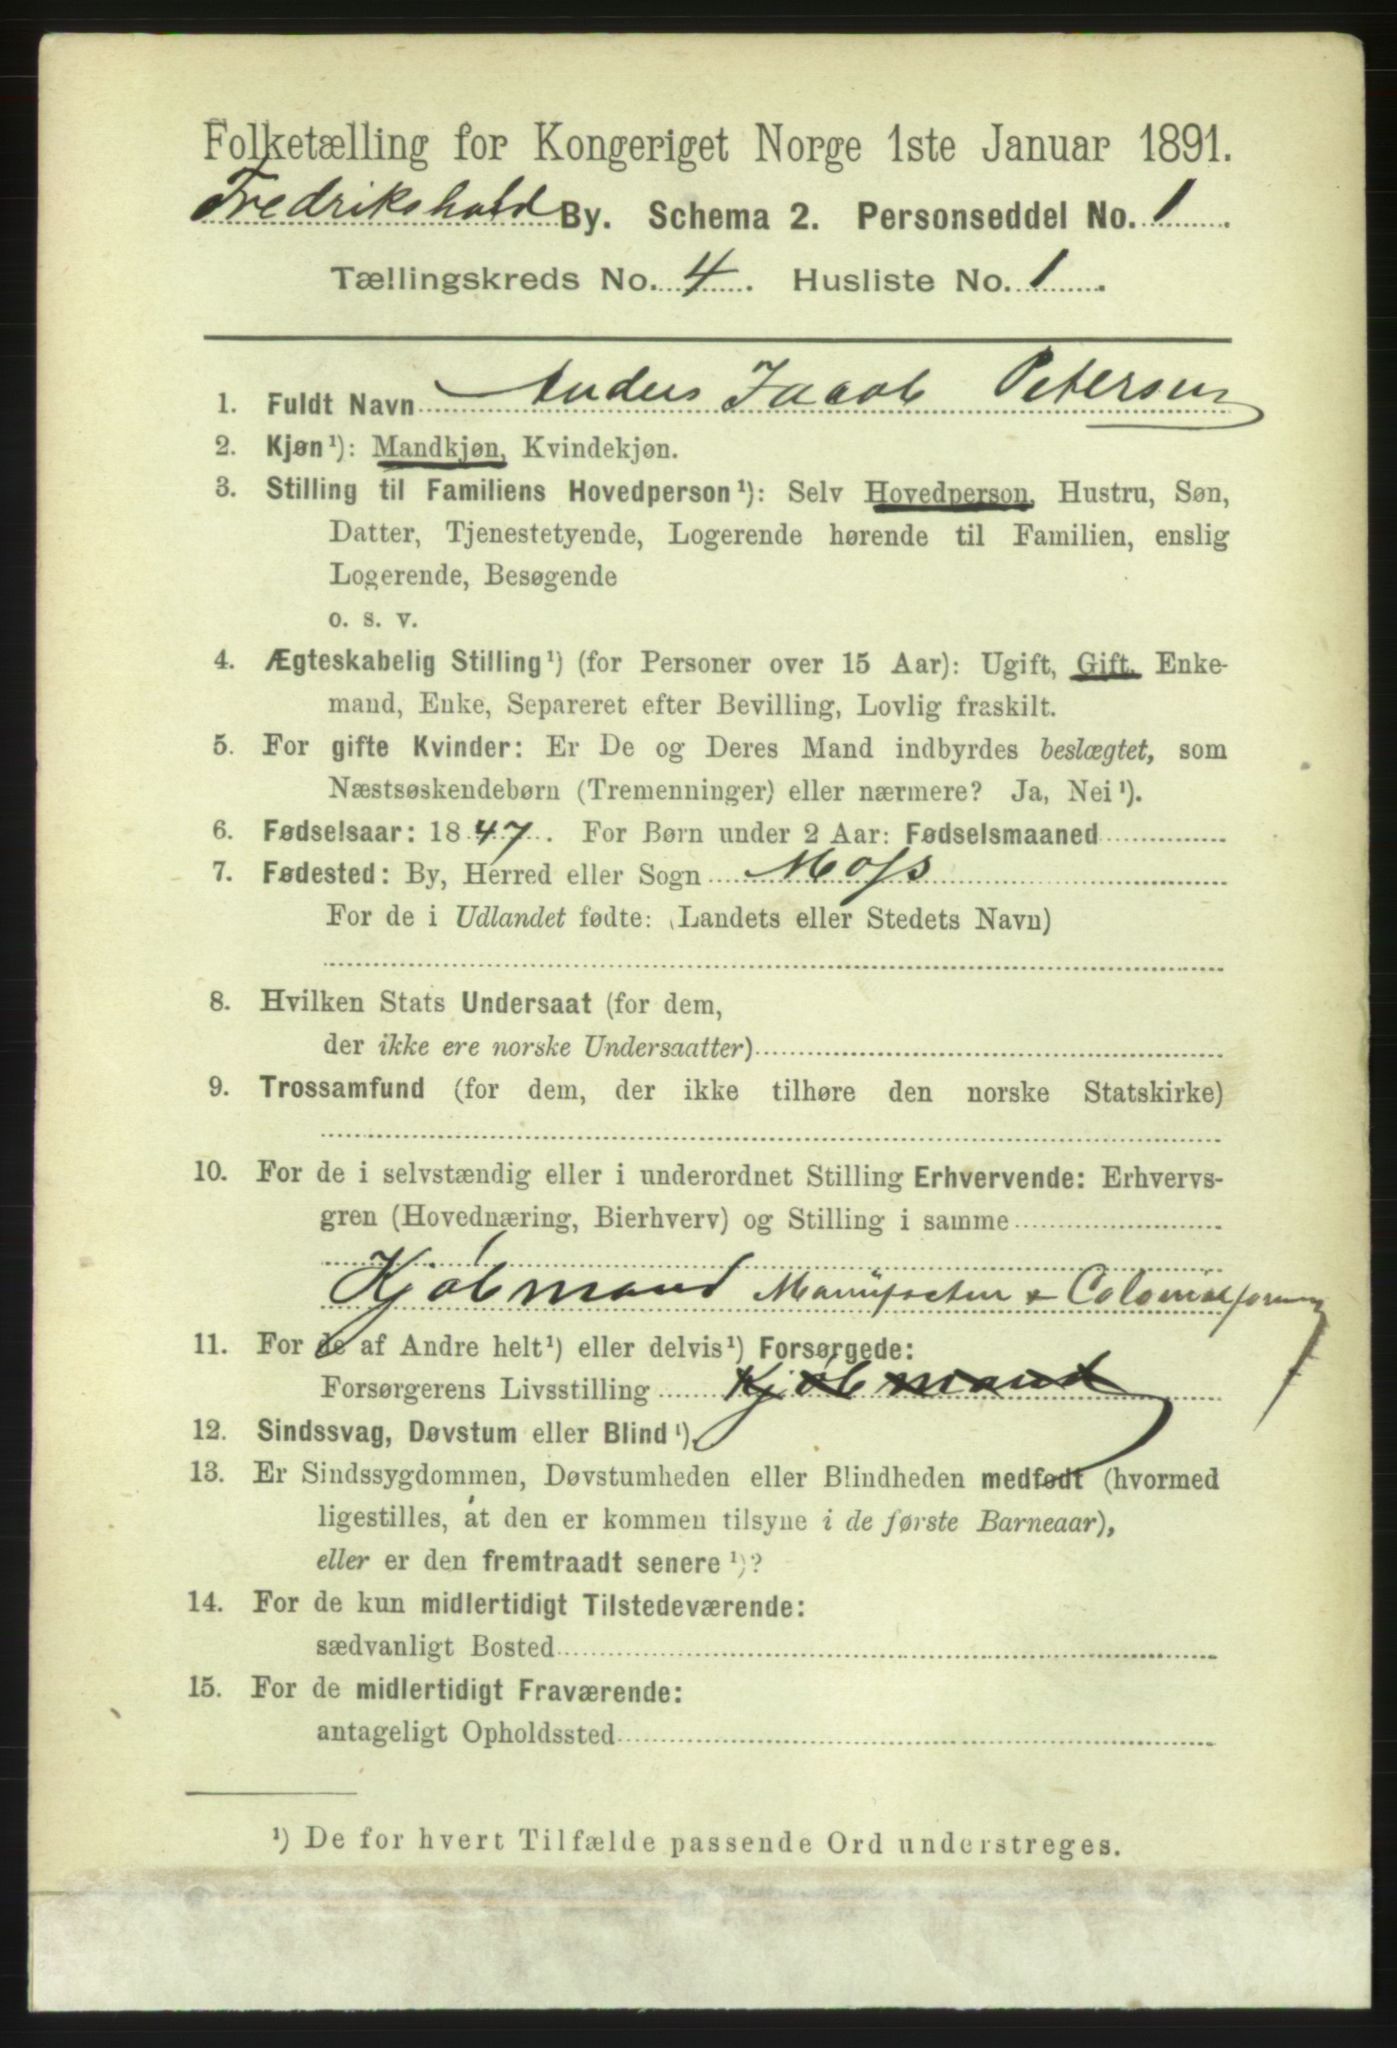 Folketælling for Kongeriget Norge 1ste Januar 1891.
Fredrikshald By. Schema 2. Personseddel No. 1.
Tællingskreds No. 4. Husliste No. 1.
1. Fuldt Navn Anders Jacob Petersen
2. Kjøn¹): Mandkjøn, Kvindekjøn.
3. Stilling til Familiens Hovedperson¹): Selv Hovedperson, Hustru, Søn,
Datter, Tjenestetyende, Logerende hørende til Familien, enslig
Logerende, Besøgende
o. s. v.
4. Ægteskabelig Stilling¹) (for Personer over 15 Aar): Ugift, Gift, Enke-
mand, Enke, Separeret efter Bevilling, Lovlig fraskilt.
5. For gifte Kvinder: Er De og Deres Mand indbyrdes beslægtet, som
Næstsøskendebørn (Tremenninger) eller nærmere? Ja, Nei¹).
6. Fødselsaar: 1847. For Børn under 2 Aar: Fødselsmaaned
7. Fødested: By, Herred eller Sogn Moss
For de i Udlandet fødte: (Landets eller Stedets Navn)
8. Hvilken Stats Undersaat (for dem,
der ikke ere norske Undersaatter)
9. Trossamfund (for dem, der ikke tilhøre den norske Statskirke)
10. For de i selvstændig eller i underordnet Stilling Erhvervende: Erhvervs-
gren (Hovednæring, Bierhverv) og Stilling i samme
Kjøbmand Manufactur &
11. For de af Andre helt¹) eller delvis¹) Forsørgede:
Forsørgerens Livsstilling Kjøbmand
12. Sindssvag, Døvstum eller Blind¹).
13. Er Sindssygdommen, Døvstumheden eller Blindheden medfødt (hvormed
ligestilles, at den er kommen tilsyne i de første Barneaar),
eller er den fremtraadt senere¹)?
14. For de kun midlertidigt Tilstedeværende:
sædvanligt Bosted
15. For de midlertidigt Fraværende:
antageligt Opholdssted
¹) De for hvert Tilfælde passende Ord understreges.